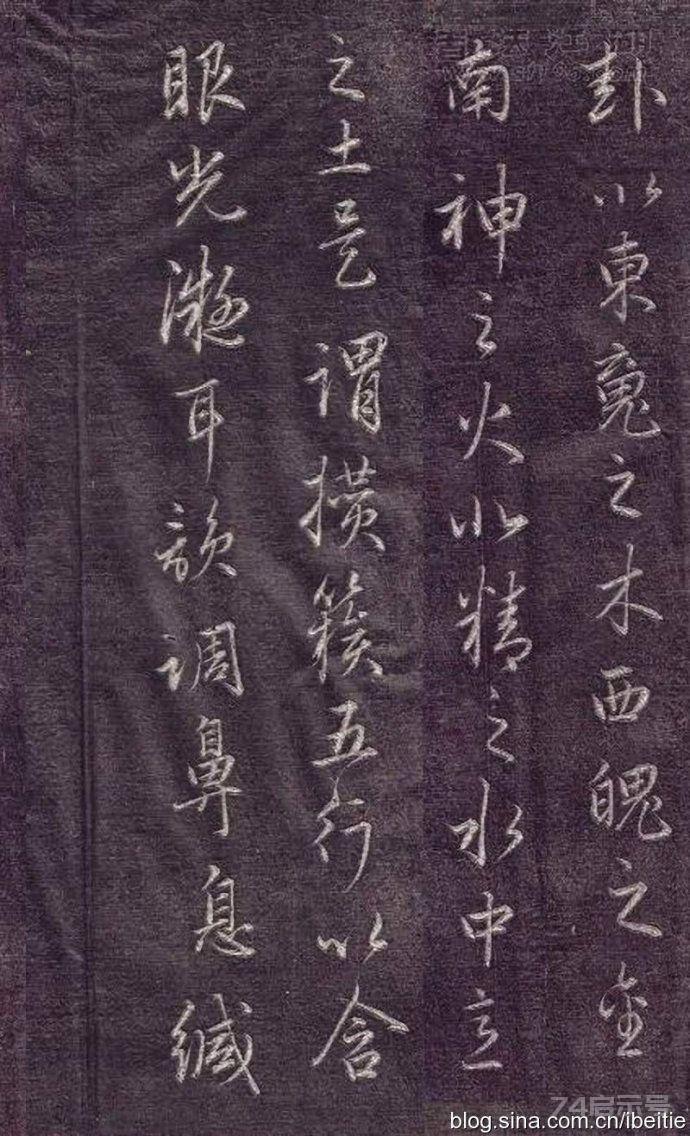 卦以東魂之木西魄之金
南神之火北精之水中意
之土是謂攢簇五行以含
眼光凝耳韻調鼻息緘
74启示号
blog.sina.com.cn/ibeitie